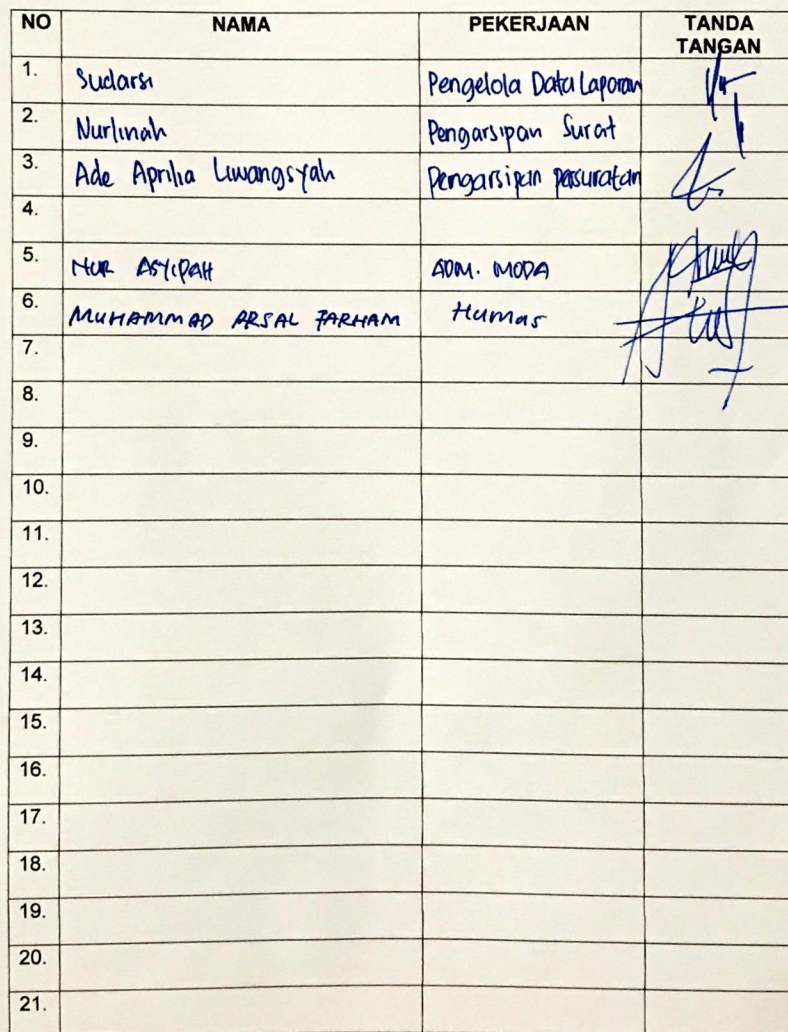 NO NAMA PEKERJAAN TANDA TANGAN
1. Sudarsi Pengelola Data Laporan
2. Nurlinah Pengarsipan Surat
3. Ade Aprilia Liwangsyah Pengarsipan persuratan
4.
5. NUR ASYIPAH ADM. MODA
6. MUHAMMAD ARSAL FARHAM Humas
7.
8.
9.
10.
11.
12.
13.
14.
15.
16.
17.
18.
19.
20.
21.